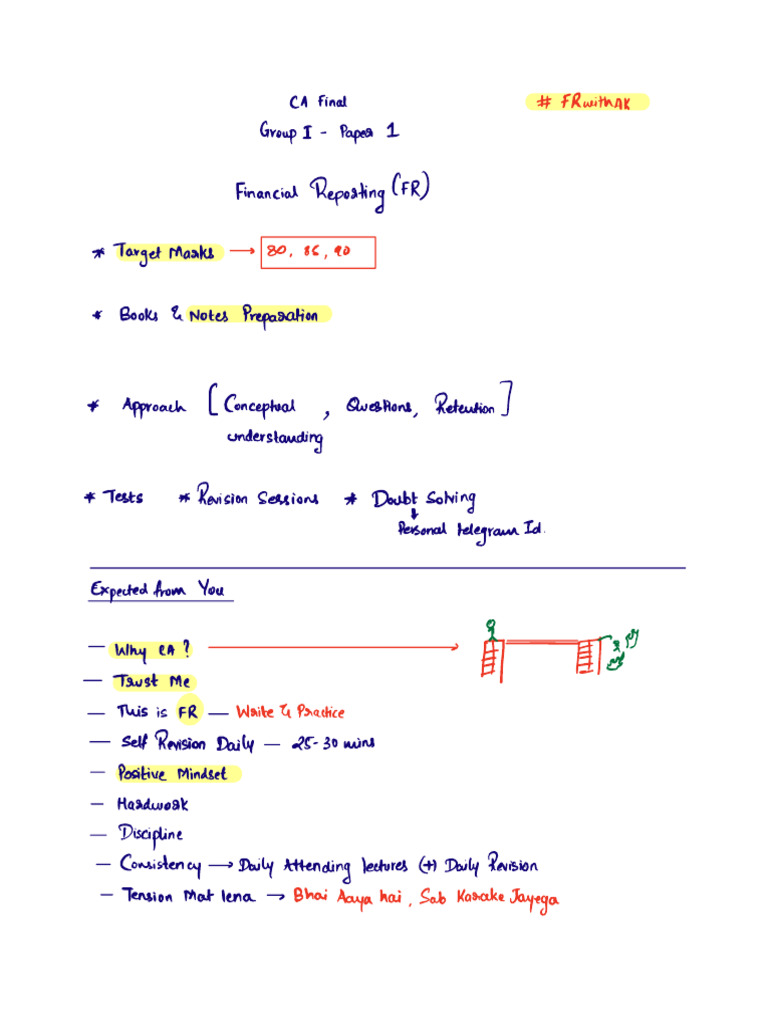 CA Final
# FRwithAK
Group I - Paper 1
Financial Reporting (FR)
* Target Marks → 80, 86, 90
* Books & Notes Preparation
* Approach [Conceptual , Questions, Retention]
understanding
* Tests * Revision Sessions * Doubt Solving
↓
Personal telegram Id.
Expected from You
— Why CA ? →
— Trust Me
— This is FR — Write & Practice
— Self Revision Daily — 25-30 mins
— Positive Mindset
— Hardwork
— Discipline
— Consistency → Daily Attending lectures (+) Daily Revision
— Tension Mat lena → Bhai Aaya hai, Sab Karake Jayega